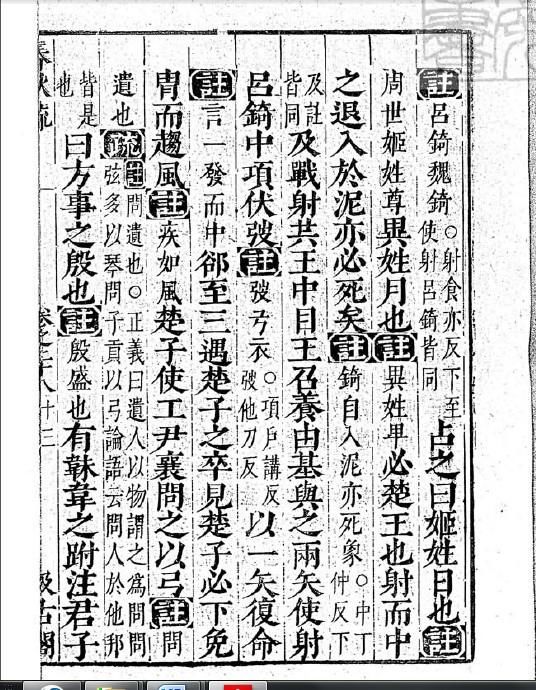 註呂錡魏錡○射食亦反下至使射呂錡皆同占之曰姬姓日也註
周世姬姓尊異姓月也註異姓卑必楚王也射而中
之退入於泥亦必死矣註錡自入泥亦死象○中丁仲反下
及註皆同及戰射共王中目王召養由基與之兩矢使射
呂錡中項伏弢註弢弓衣○項戶講反弢他刀反以一矢復命
註言一發而中郤至三遇楚子之卒見楚子必下免
冑而趨風註疾如風楚子使工尹襄問之以弓註問
遺也疏註問遺也○正義曰遺人以物謂之為問問弦多以琴問子貢以弓論語云問人於他邦
皆是也曰方事之殷也註殷盛也有韎韋之跗注君子
春秋疏 十三 汲古閣